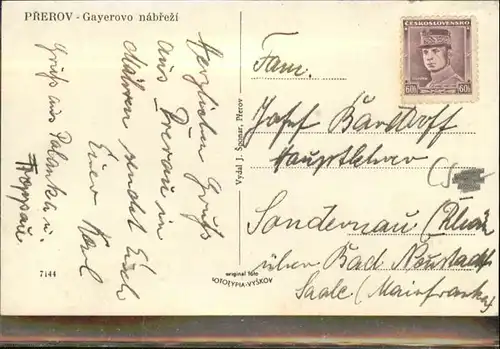 PŘEROV - Gayerovo nábřeží
Herzlichen Gruß
aus Prerau in
Mähren sendet Euch
Euer Karl
Gruß aus Polanka u.
Troppau
7144
Vydal J. Špunar, Přerov
original foto
FOTOTYPIA-VYŠKOV
ČESKOSLOVENSKO
60h 60h
Fam.
Josef
Hauptlehrer
Sondernau (Rhön
über Bad Neustadt
Saale (Mainfranken)